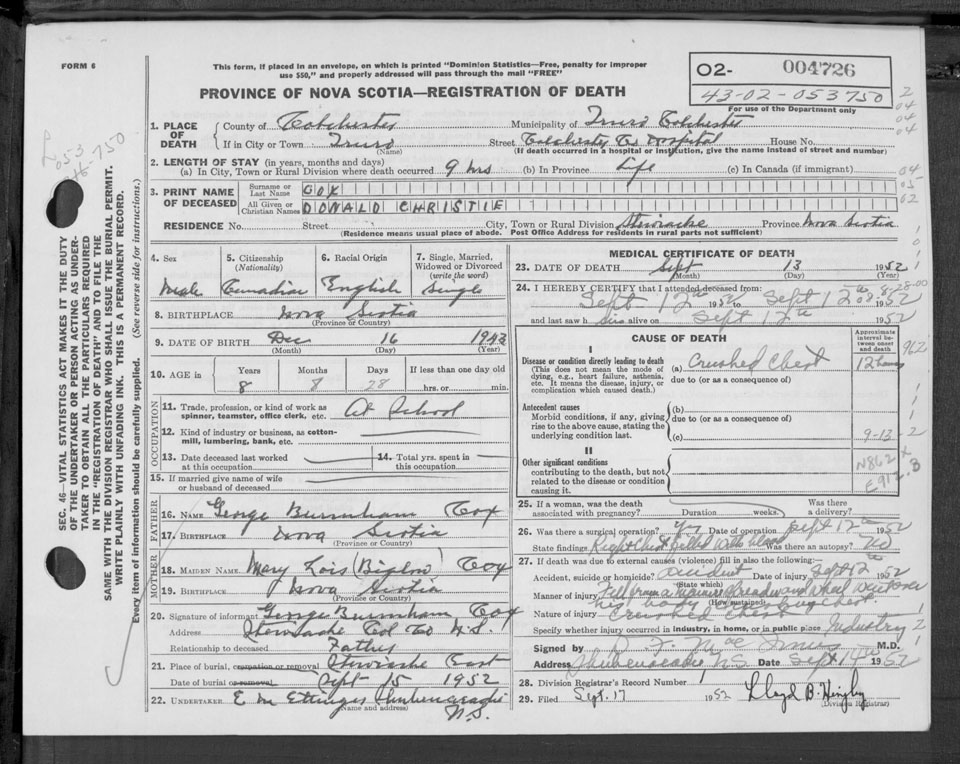 FORM 6
This form, if placed in an envelope, on which is printed "Dominion Statistics—Free, penalty for improper
use $50," and properly addressed will pass through the mail "FREE"
PROVINCE OF NOVA SCOTIA—REGISTRATION OF DEATH
O2- 004726
43-02-053750
For use of the Department only
2
04
04
04
053 750
1. PLACE OF DEATH
County of Colchester Municipality of Truro Colchester
If in City or Town Truro Street Colchester Co Hospital House No.
(Name) (If death occurred in a hospital or institution, give the name instead of street and number)
2. LENGTH OF STAY (in years, months and days)
(a) In City, Town or Rural Division where death occurred 9 hrs (b) In Province Life (c) In Canada (if immigrant)
04
05
02
3. PRINT NAME OF DECEASED
Surname or Last Name COX
All Given or Christian Names DONALD CHRISTIE
RESIDENCE No. Street City, Town or Rural Division Stewiacke Province Nova Scotia
(Residence means usual place of abode. Post Office Address for residents in rural parts not sufficient)
SEC. 46—VITAL STATISTICS ACT MAKES IT THE DUTY
OF THE UNDERTAKER OR PERSON ACTING AS UNDER-
TAKER TO OBTAIN ALL THE PARTICULARS REQUIRED
IN THE "REGISTRATION OF DEATH" AND TO FILE THE
SAME WITH THE DIVISION REGISTRAR WHO SHALL ISSUE THE BURIAL PERMIT.
WRITE PLAINLY WITH UNFADING INK. THIS IS A PERMANENT RECORD.
Every item of information should be carefully supplied. (See reverse side for instructions.)
4. Sex 5. Citizenship (Nationality) 6. Racial Origin 7. Single, Married, Widowed or Divorced (write the word)
Male Canadian English Single
8. BIRTHPLACE Nova Scotia
(Province or Country)
9. DATE OF BIRTH Dec 16 1943
(Month) (Day) (Year)
10. AGE in Years Months Days If less than one day old
8 8 28 hrs. or min.
OCCUPATION
11. Trade, profession, or kind of work as spinner, teamster, office clerk, etc. At School
12. Kind of industry or business, as cotton-mill, lumbering, bank, etc.
13. Date deceased last worked at this occupation 14. Total yrs. spent in this occupation
15. If married give name of wife or husband of deceased
FATHER
16. NAME George Burnham Cox
17. BIRTHPLACE Nova Scotia
(Province or Country)
MOTHER
18. MAIDEN NAME Mary Lois Cox
19. BIRTHPLACE Nova Scotia
(Province or Country)
20. Signature of informant George Burnham Cox
Address Stewiacke Col Co N.S.
Relationship to deceased Father
21. Place of burial, cremation or removal Stewiacke East
Date of burial or removal Sept 15 1952
22. UNDERTAKER E M Ettinger Shubenacadie
(Name and address) N.S.
MEDICAL CERTIFICATE OF DEATH
23. DATE OF DEATH Sept 13 1952
(Month) (Day) (Year)
24. I HEREBY CERTIFY that I attended deceased from:
8-28-00
Sept 12th 1952 to Sept 12th 1952
and last saw h is alive on Sept 12th 1952
CAUSE OF DEATH
Approximate interval between onset and death
I
Disease or condition directly leading to death (a) Crushed Chest 12 hours 962
(This does not mean the mode of dying, e.g., heart failure, asthenia, etc. It means the disease, injury, or complication which caused death.)
due to (or as a consequence of)
Antecedent causes (b)
Morbid conditions, if any, giving rise to the above cause, stating the underlying condition last.
due to (or as a consequence of)
(c) 9-13-2
II
Other significant conditions N862 X
contributing to the death, but not related to the disease or condition causing it.
E912.3
25. If a woman, was the death associated with pregnancy? Duration weeks. Was there a delivery?
26. Was there a surgical operation? Yes Date of operation Sept 12th 1952
State findings Right Chest filled with blood Was there an autopsy? No
27. If death was due to external causes (violence) fill in also the following:
Accident, suicide or homicide? accident Date of injury Sept 12th 1952
(State which)
Manner of injury Fell from a manure spreader and wheel went over
(How sustained) his body
Nature of injury Crushed Chest
Specify whether injury occurred in industry, in home, or in public place Industry 2
Signed by M.D.
Address Shubenacadie N.S. Date Sept 14th 1952
28. Division Registrar's Record Number 1
29. Filed Sept. 17 1952 Lloyd B.
(Division Registrar)